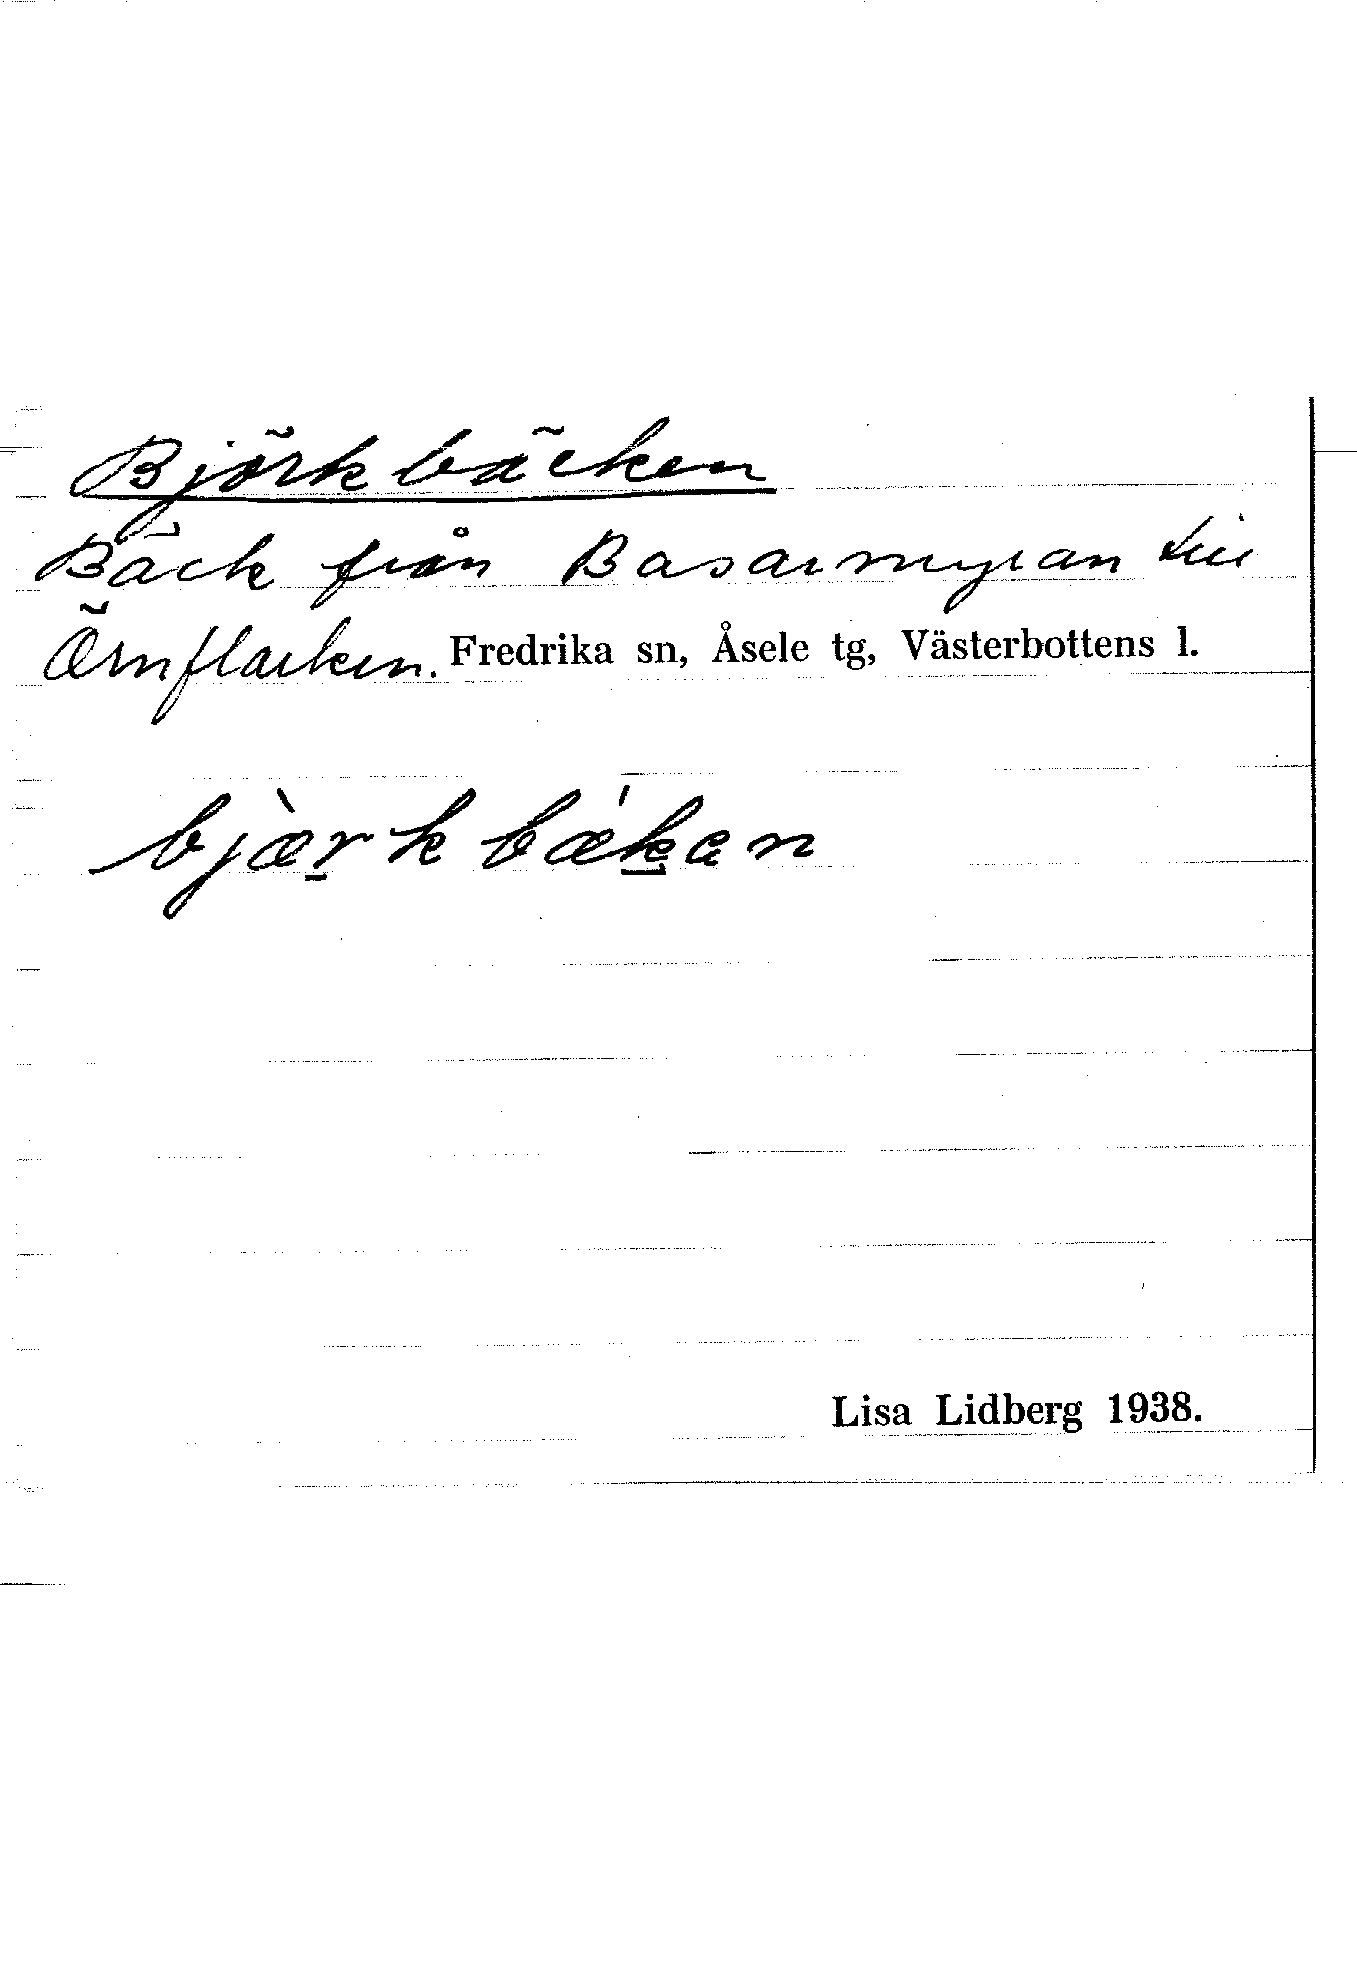 Björkbäcken
Bäck från Basarmyran till
Örnflarken. Fredrika sn, Åsele tg, Västerbottens l.
bjæ̀rkbǽkan
Lisa Lidberg 1938.